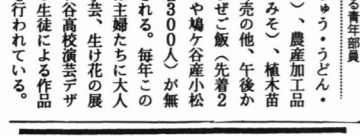 る青年部員
ゅう・うどん・
）、農産加工品
みそ）、植木苗
売の他、午後か
ぜご飯（先着2
や鳩ケ谷産小松
300人）が無
れる。毎年この
主婦たちに大人
芸、生け花の展
谷高校演芸デザ
生徒による作品
行われている。